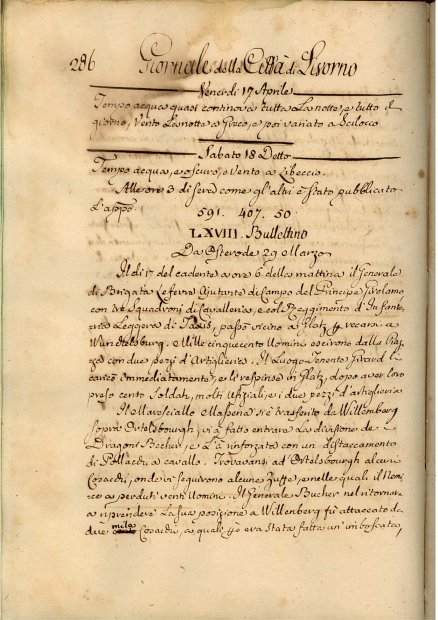 286 Giornale della Città di Livorno
Venerdì 17 Aprile
Tempo acqua quasi continova tutta La notte, e tutto il
giorno, Vento La notte a Greco, e poi variato a Scilocco
Sabato 18 Detto
Tempo acqua, e oscuro, e Vento a Libeccio.
Alle ore 3 di sera come gl'altri è stato pubblicato
L'appo
591. 407. 50
LXVIII. Bullettino
Da Osterode 29 Marzo
Il dì 17 del cadente a ore 6 della mattina il Generale
di Brigata Lefevre Ajutante di Campo del Principe Girolamo
con tre Squadroni di Cavalleria, e col Reggimento d'Infante
ria Leggera di Taxis, passò vicino a Glatz recarsi a
Wunchelsburg. e Mille cinquecento Uomini escirono dalla
con due pezzi d'Artiglieria. Il Luogo Tenente Girard li
caricò immediatamente, e li respinse in Glatz, dopo aver loro
preso cento Soldati, molti Ufiziali, e i due pezzi d'artiglieria
Il Maresciallo Massena si è trasferito da Willemberg
sopra Ortelsbourgh, vi à fatto entrare La divisione de
Dragoni Becker, e L'à rinforzata con un distaccamento
di Pollacchi a cavallo. Trovavansi ad Ortelsbourgh alcuni
Cosacchi, onde vi seguirono alcune Zuffe, e nelle quali il Nemi
co à perduti venti Uomini. Il Generale Becker nel ritornare
a riprendere La sua posizione a Willenberg fù attaccato da
due mila Cosacchi, a quali era stata fatta un'imboscata,